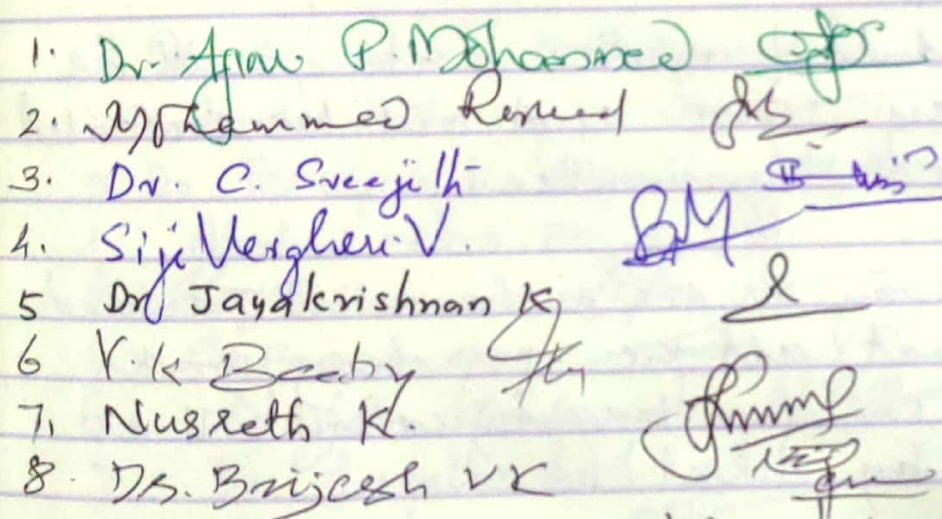 1. Dr. Ajims P. Mohammed
2. Mohammed Rasheed
3. Dr. C. Sreejith
4. Siji Verghese V.
5 Dr Jayakrishnan K
6 V.K Beeby
7. Nusreth K.
8. Dr. Brijesh VK